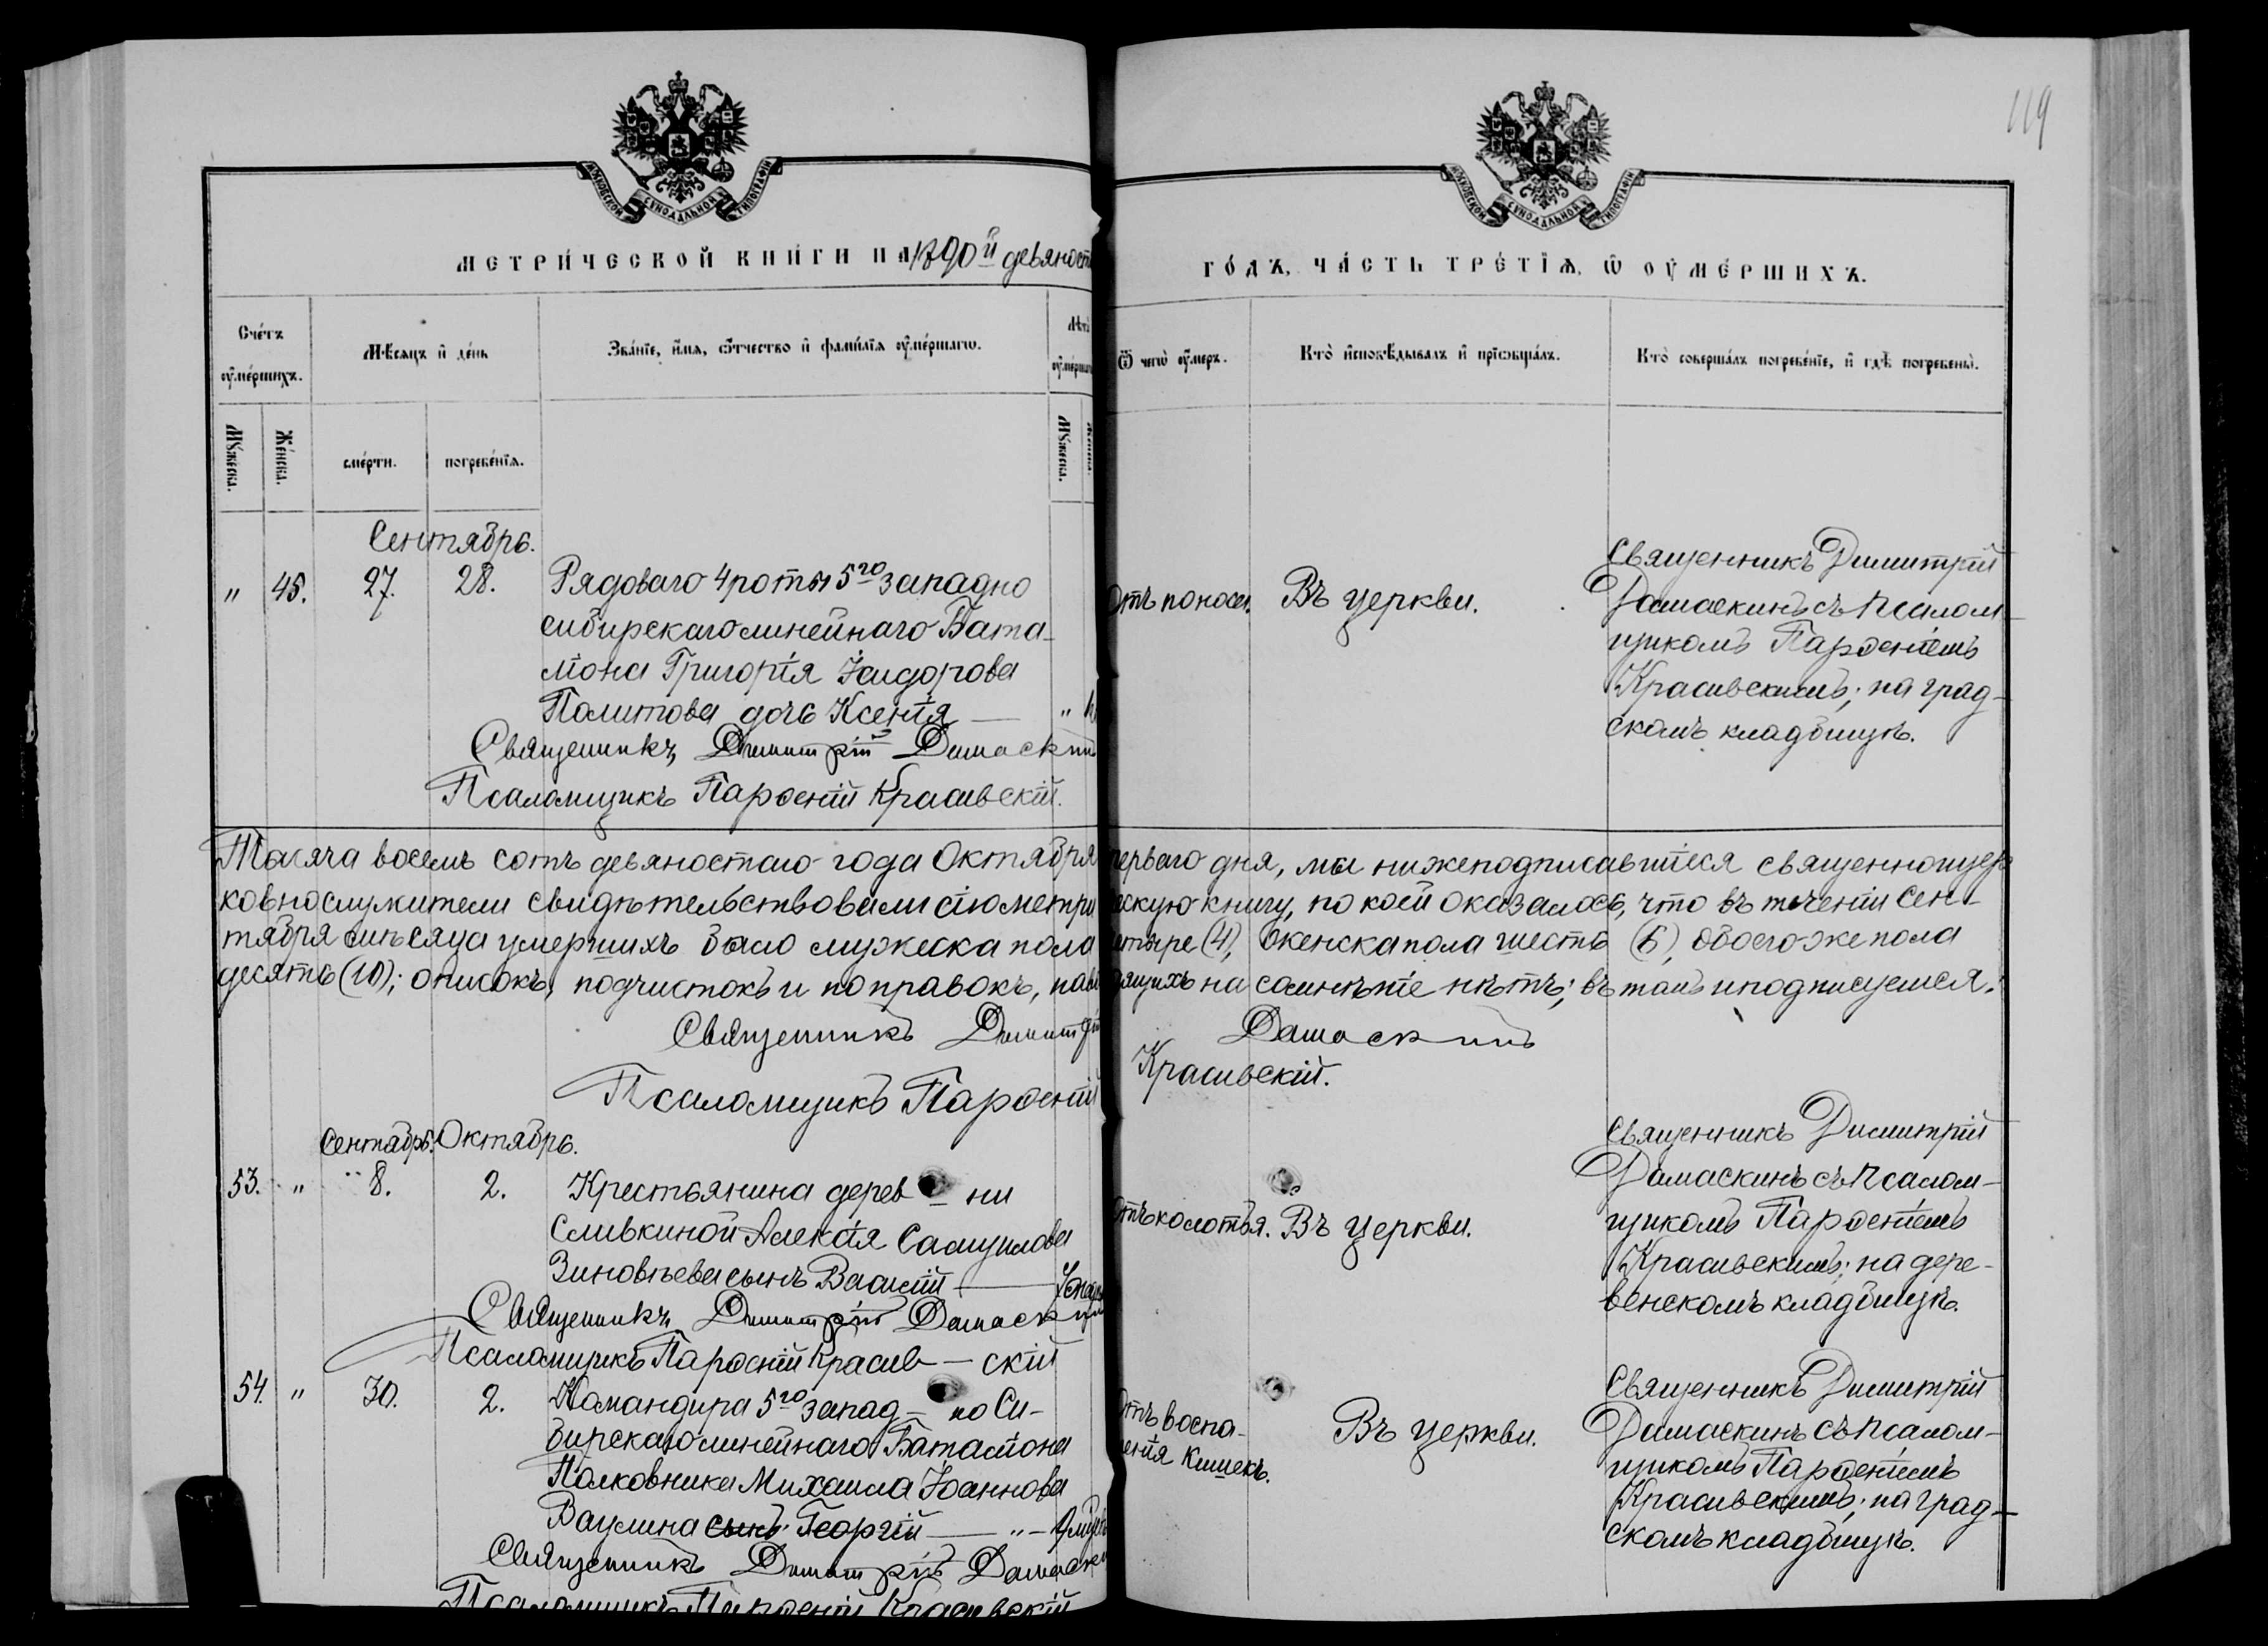 119
МОСКОВСКОЙ СУНОДАЛЬНОЙ ТИПОГРАФІИ
МОСКОВСКОЙ СУНОДАЛЬНОЙ ТИПОГРАФІИ
МЕТРИ́ЧЕСКОЙ КНИ́ГИ НА 1890й девяност
ГО́ДЪ, ЧА́СТЬ ТРЕ́ТІѦ, Ѡ ОУМЕ́РШИХЪ.
Сче́тъ оуме́ршихъ.
Мѣ́сяцъ и де́нь
Зва́нїе, и́мя, ѻ́тчество и фами́лїя оуме́ршагѡ.
Лѣт
оумерша
Ѿ чегѡ̀ оу́меръ.
Кто̀ и҆сповѣ́дывалъ и҆ прїѡбща́лъ.
Кто̀ соверша́лъ погребе́нїе, и҆ гдѣ̀ погребены̀.
Мꙋ́жеска.
Же́нска.
сме́рти.
погребе́нїѧ.
Мꙋ́жеска.
Сентябрь.
" 45. 27. 28. Рядоваго 4 роты 5го западно
сибирскаго линейнаго Бата-
ліона Григорія Исидорова
Политова дочь Ксенія — "
Священникъ Димитрій Дамаскин
Псаломщикъ Парѳеній Красивскій.
Отъ поноса. Въ церкви.
Священникъ Димитрій
Дамаскинъ съ псалом-
щикомъ Парѳеніемъ
Красивскимъ; на град-
скомъ кладбищѣ.
Тысяча восемь сотъ девяностаго года Октября перваго дня, мы нижеподписавшіеся священноцер
ковнослужители свидѣтельствовали сію метри ческую книгу, по коей оказалось, что въ теченіи Сен-
тября мѣсяца умершихъ было мужеска пола четыре (4), женска пола шесть (6), обоего же пола
десять (10); описокъ, подчистокъ и поправокъ, наво дящихъ на сомнѣніе нѣтъ; въ томъ и подписуемся:
Священникъ Димитрій Дамаскинъ
Псаломщикъ Парѳеній Красивскій.
Сентябрь. Октябрь.
53. " 8. 2. Крестьянина дерев — ни
Сливкиной Алексія Самуилова
Зиновьева сынъ Василій —
Священникъ Димитрій Дамаскин
Псаломщикъ Парѳеній Красив — скій
Отъ колотья. Въ церкви.
Священникъ Димитрій
Дамаскинъ съ псалом-
щикомъ Парѳеніемъ
Красивскимъ; на дере-
венскомъ кладбищѣ.
54. " 30. 2. Командира 5го запад — но Си-
бирскаго линейнаго Баталіона
Полковника Михаила Іоаннова
Ваулина сынъ Георгій — " —
Священникъ Димитрій Дамаски
Псаломщикъ Парѳеній Красивскій
Отъ воспа-
ленія кишекъ.
Въ церкви.
Священникъ Димитрій
Дамаскинъ съ псалом-
щикомъ Парѳеніемъ
Красивскимъ; на град-
скомъ кладбищѣ.